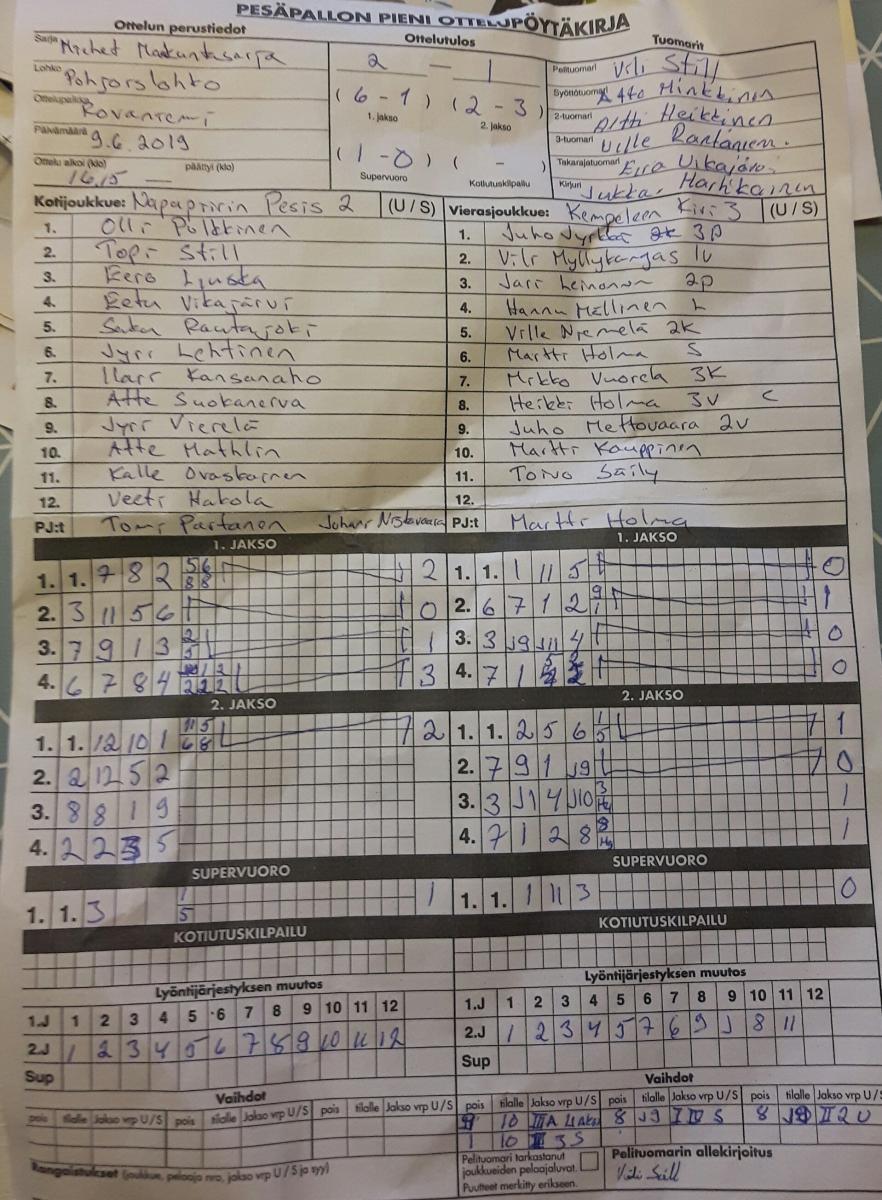 PESÄPALLON PIENI OTTELUPÖYTÄKIRJA
Ottelun perustiedot Ottelutulos Tuomarit
Sarja Miehet Maakuntasarja 2 — 1 Pelituomari Vili Still
Lohko Pohjoislohko Syöttötuomari Atto Minkkinen
Ottelupaikka Rovaniemi (6 - 1) (2 - 3) 2-tuomari Altti Heikkinen
1. jakso 2. jakso 3-tuomari Ville Rantaniemi
Päivämäärä 9.6.2019 Takarajatuomari Eira Vikajärvi
Ottelu alkoi (klo) 16.15 päättyi (klo) — (1 - 0) ( - ) Kirjuri Jukka Harhikainen
Supervuoro Kotiutuskilpailu
Kotijoukkue: Napapiirin Pesis 2 (U / S) Vierasjoukkue: Kempeleen Kiri 3 (U / S)
1. Olli Pulkkinen 1. Juho 3p
2. Topi Still 2. Vili Myllykangas 1v
3. Eero 3. Jari Leinonen 2p
4. Eetu Vikajärvi 4. Hannu Mällinen L
5. Saku Rautajoki 5. Ville Niemelä 2K
6. Jyri Lehtinen 6. Martti Holma S
7. Ilari Kansanaho 7. Mikko Vuorela 3K
8. Atte Suokanerva 8. Heikki Holma 3V C
9. Jyri Vierelä 9. Juho Mettovaara 2v
10. Atte Mathlin 10. Martti Kauppinen
11. Kalle Ovaskainen 11. Toivo Säily
12. Veeti Hakola 12.
PJ:t Tomi Partanen Juhani PJ:t Martti Holma
1. JAKSO 1. JAKSO
1. 1. 7 8 2 5 6 8 8 2 1. 1. 1 11 5 0
2. 3 11 5 6 0 2. 6 7 1 2 9 1 1
3. 7 9 1 3 2 5 1 3. 3 J9 J11 4 0
4. 6 7 8 4 1 2 2 2 2 3 4. 7 1 0
2. JAKSO 2. JAKSO
1. 1. 12 10 1 11 5 6 8 2 1. 1. 2 5 6 1 5 1
2. 2 12 5 2 2. 7 9 1 J9 0
3. 8 8 1 9 3. 3 J1 4 J10 3 Hy 1
4. 2 2 3 5 4. 7 1 2 8 8 Hy 1
SUPERVUORO SUPERVUORO
1. 1. 3 1 5 1 1. 1. 1 11 3 0
KOTIUTUSKILPAILU KOTIUTUSKILPAILU
Lyöntijärjestyksen muutos Lyöntijärjestyksen muutos
1.J 1 2 3 4 5 6 7 8 9 10 11 12 1.J 1 2 3 4 5 6 7 8 9 10 11 12
2.J 1 2 3 4 5 6 7 8 9 10 11 12 2.J 1 2 3 4 5 7 6 9 J 8 11
Sup Sup
Vaihdot Vaihdot
pois tilalle Jakso vrp U/S pois tilalle Jakso vrp U/S pois tilalle Jakso vrp U/S pois tilalle Jakso vrp U/S pois tilalle Jakso vrp U/S pois tilalle Jakso vrp U/S
9 10 8 J9 I IV S 8 II 2 U
1 10 3 S
Rangaistukset (joukkue, pelaaja nro, jakso vrp U/S ja syy) Pelituomari tarkastanut joukkueiden pelaajaluvat. Pelituomarin allekirjoitus
Puutteet merkitty erikseen. Vili Still